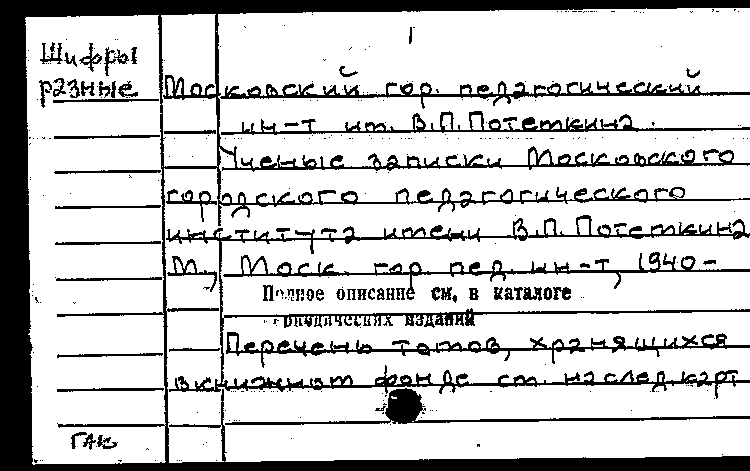 1
Шифры
разные
Московский гор. педагогический
ин-т им. В.П.Потемкина.
Ученые записки Московского
городского педагогического
института имени В.П. Потемкина
М., Моск. гор. пед. ин-т, 1940-
Полное описание см. в каталоге
периодических изданий
Перечень томов, хранящихся
в книжном фонде см. на след. карт
ГАК